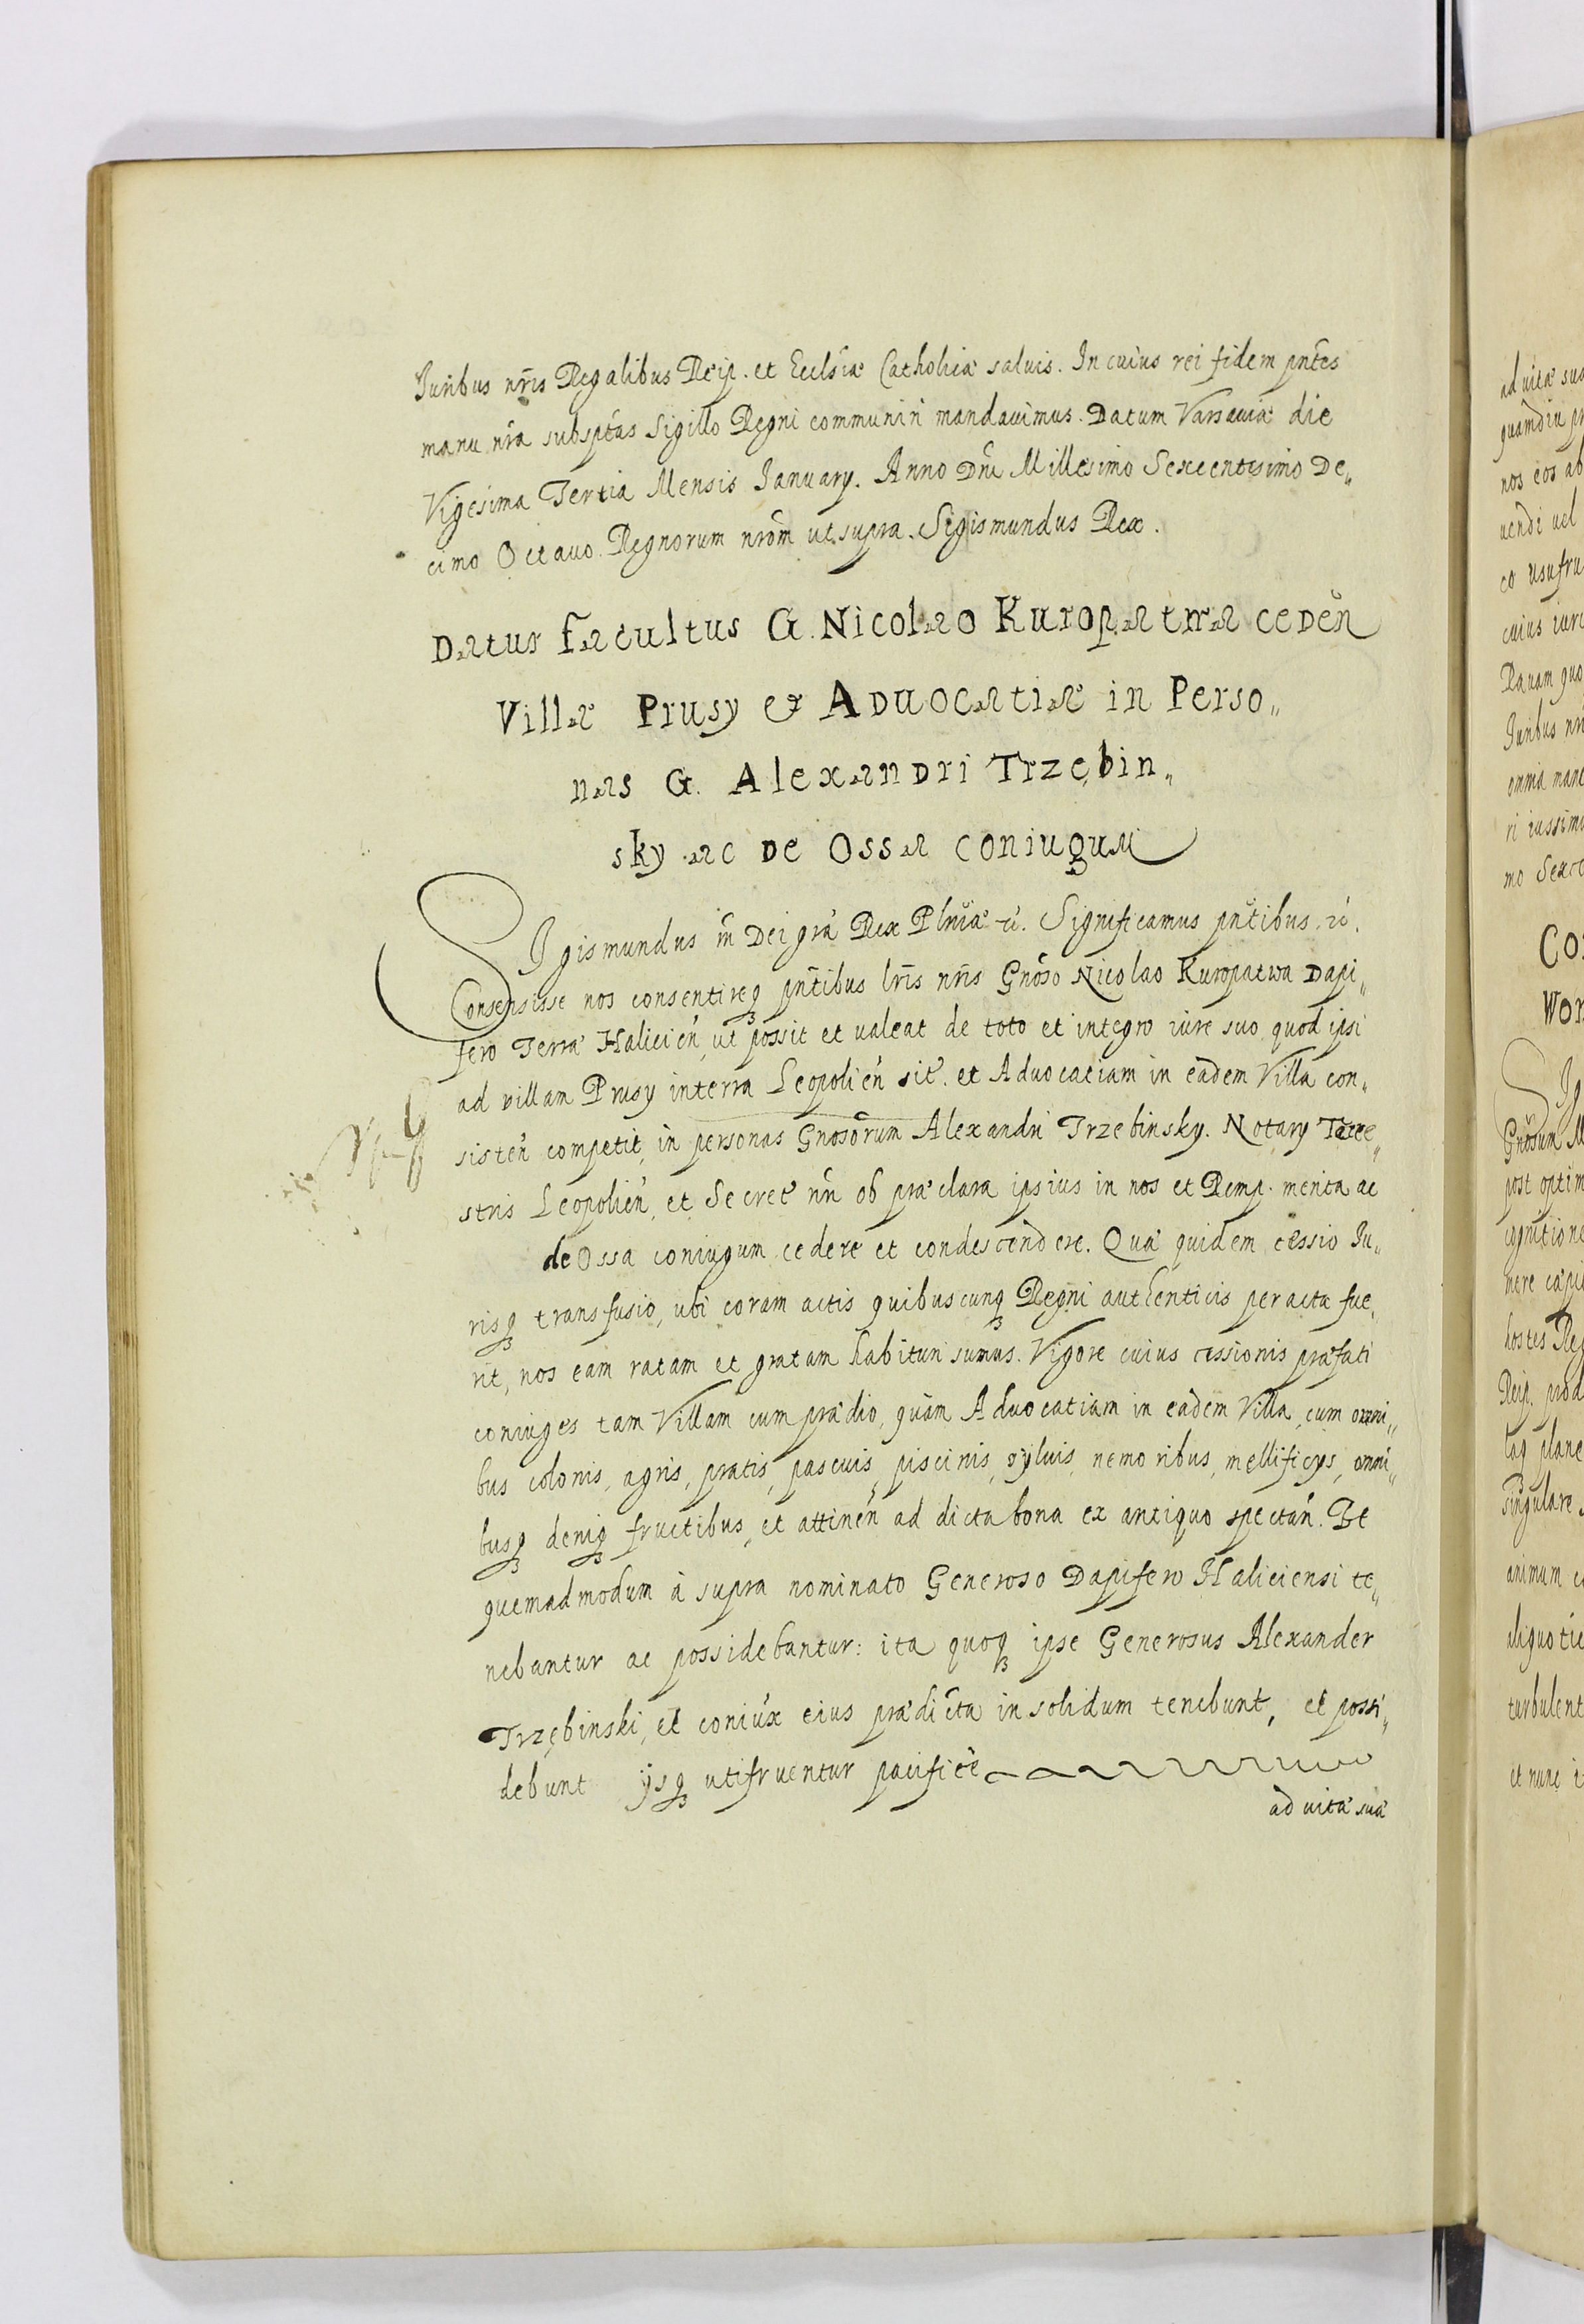 Juribus nris Regalibus Reip. et Ecclsiæ Catholicæ saluis. In cuius rei fidem pntes
manu nra subsptas Sigillo Regni communiri mandauimus. Datum Varsauiæ die
Vigesima Tertia Mensis January. Anno Dni Millesimo Sexcentesimo De„
cimo Octauo. Regnorum nrom ut supra. Sigismundus Rex.
Datur facultus G. Nicolao Kuropatwa ceden
Villæ Prusy et Aduocatiæ in Perso„
nas G. Alexandri Trzębin„
sky ac de Ossa coniugum
Sigismundus iii Dei gra Rex Plniæ etc. Significamus pntibus. etc.
Consensisse nos consentireq pntibus lris nris Gnoso Nicolao Kuropatwa Dapi„
fero Terræ Halicien, ut possit et ualeat de toto et integro iure suo quod ipsi
ad villam Prusy in terra Leopolien sit. et Aduocatiam in eadem Villa con„
sisten competit, in personas Gnosorum Alexandri Trzebinsky. Notary Terre„
stris Leopolien, et Secret nri ob præclara ipsius in nos et Remp. merita ac
de Ossa coniugum cedere et condescendere. Quæ quidem cessio Ju„
risq transfusio, ubi coram actis quibuscunq Regni authenticis peracta fue„
rit, nos eam ratam et gratam habituri sumus. Vigore cuius cessionis præfati
coniuges tam Villam cum prædio, quàm Aduocatiam in eadem Villa, cum omni„
bus colonis, agris, pratis, pascuis, piscinis, syluis, nemoribus, mellificys, omni„
busq deniq fructibus, et attinen ad dicta bona ex antiquo spectan. Et
quemadmodum à supra nominato Generoso Dapifero Haliciensi te„
nebantur ac possidebantur: ita quoq ipse Generosus Alexander
Trzębinski, et coniux eius prædicta in solidum tenebunt, et possi„
debunt ijsq utifruentur pacificè
ad uitæ suæ